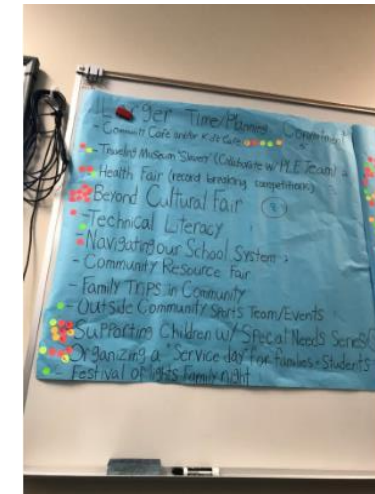 Larger Time/Planning Commitment
- Community Cafe and/or Kids Cafe
- Traveling Museum "Slavery" (Collaborate w/ PLE Team)
- Health Fair (record breaking competitions)
Beyond Cultural Fair
- Technical Literacy
- Navigating our School System
- Community Resource Fair
- Family Trips in Community
- Outside Community Sports Team/Events
Supporting Children w/ Special Needs Series
Organizing a "Service day" for families + Students
- Festival of lights Family night